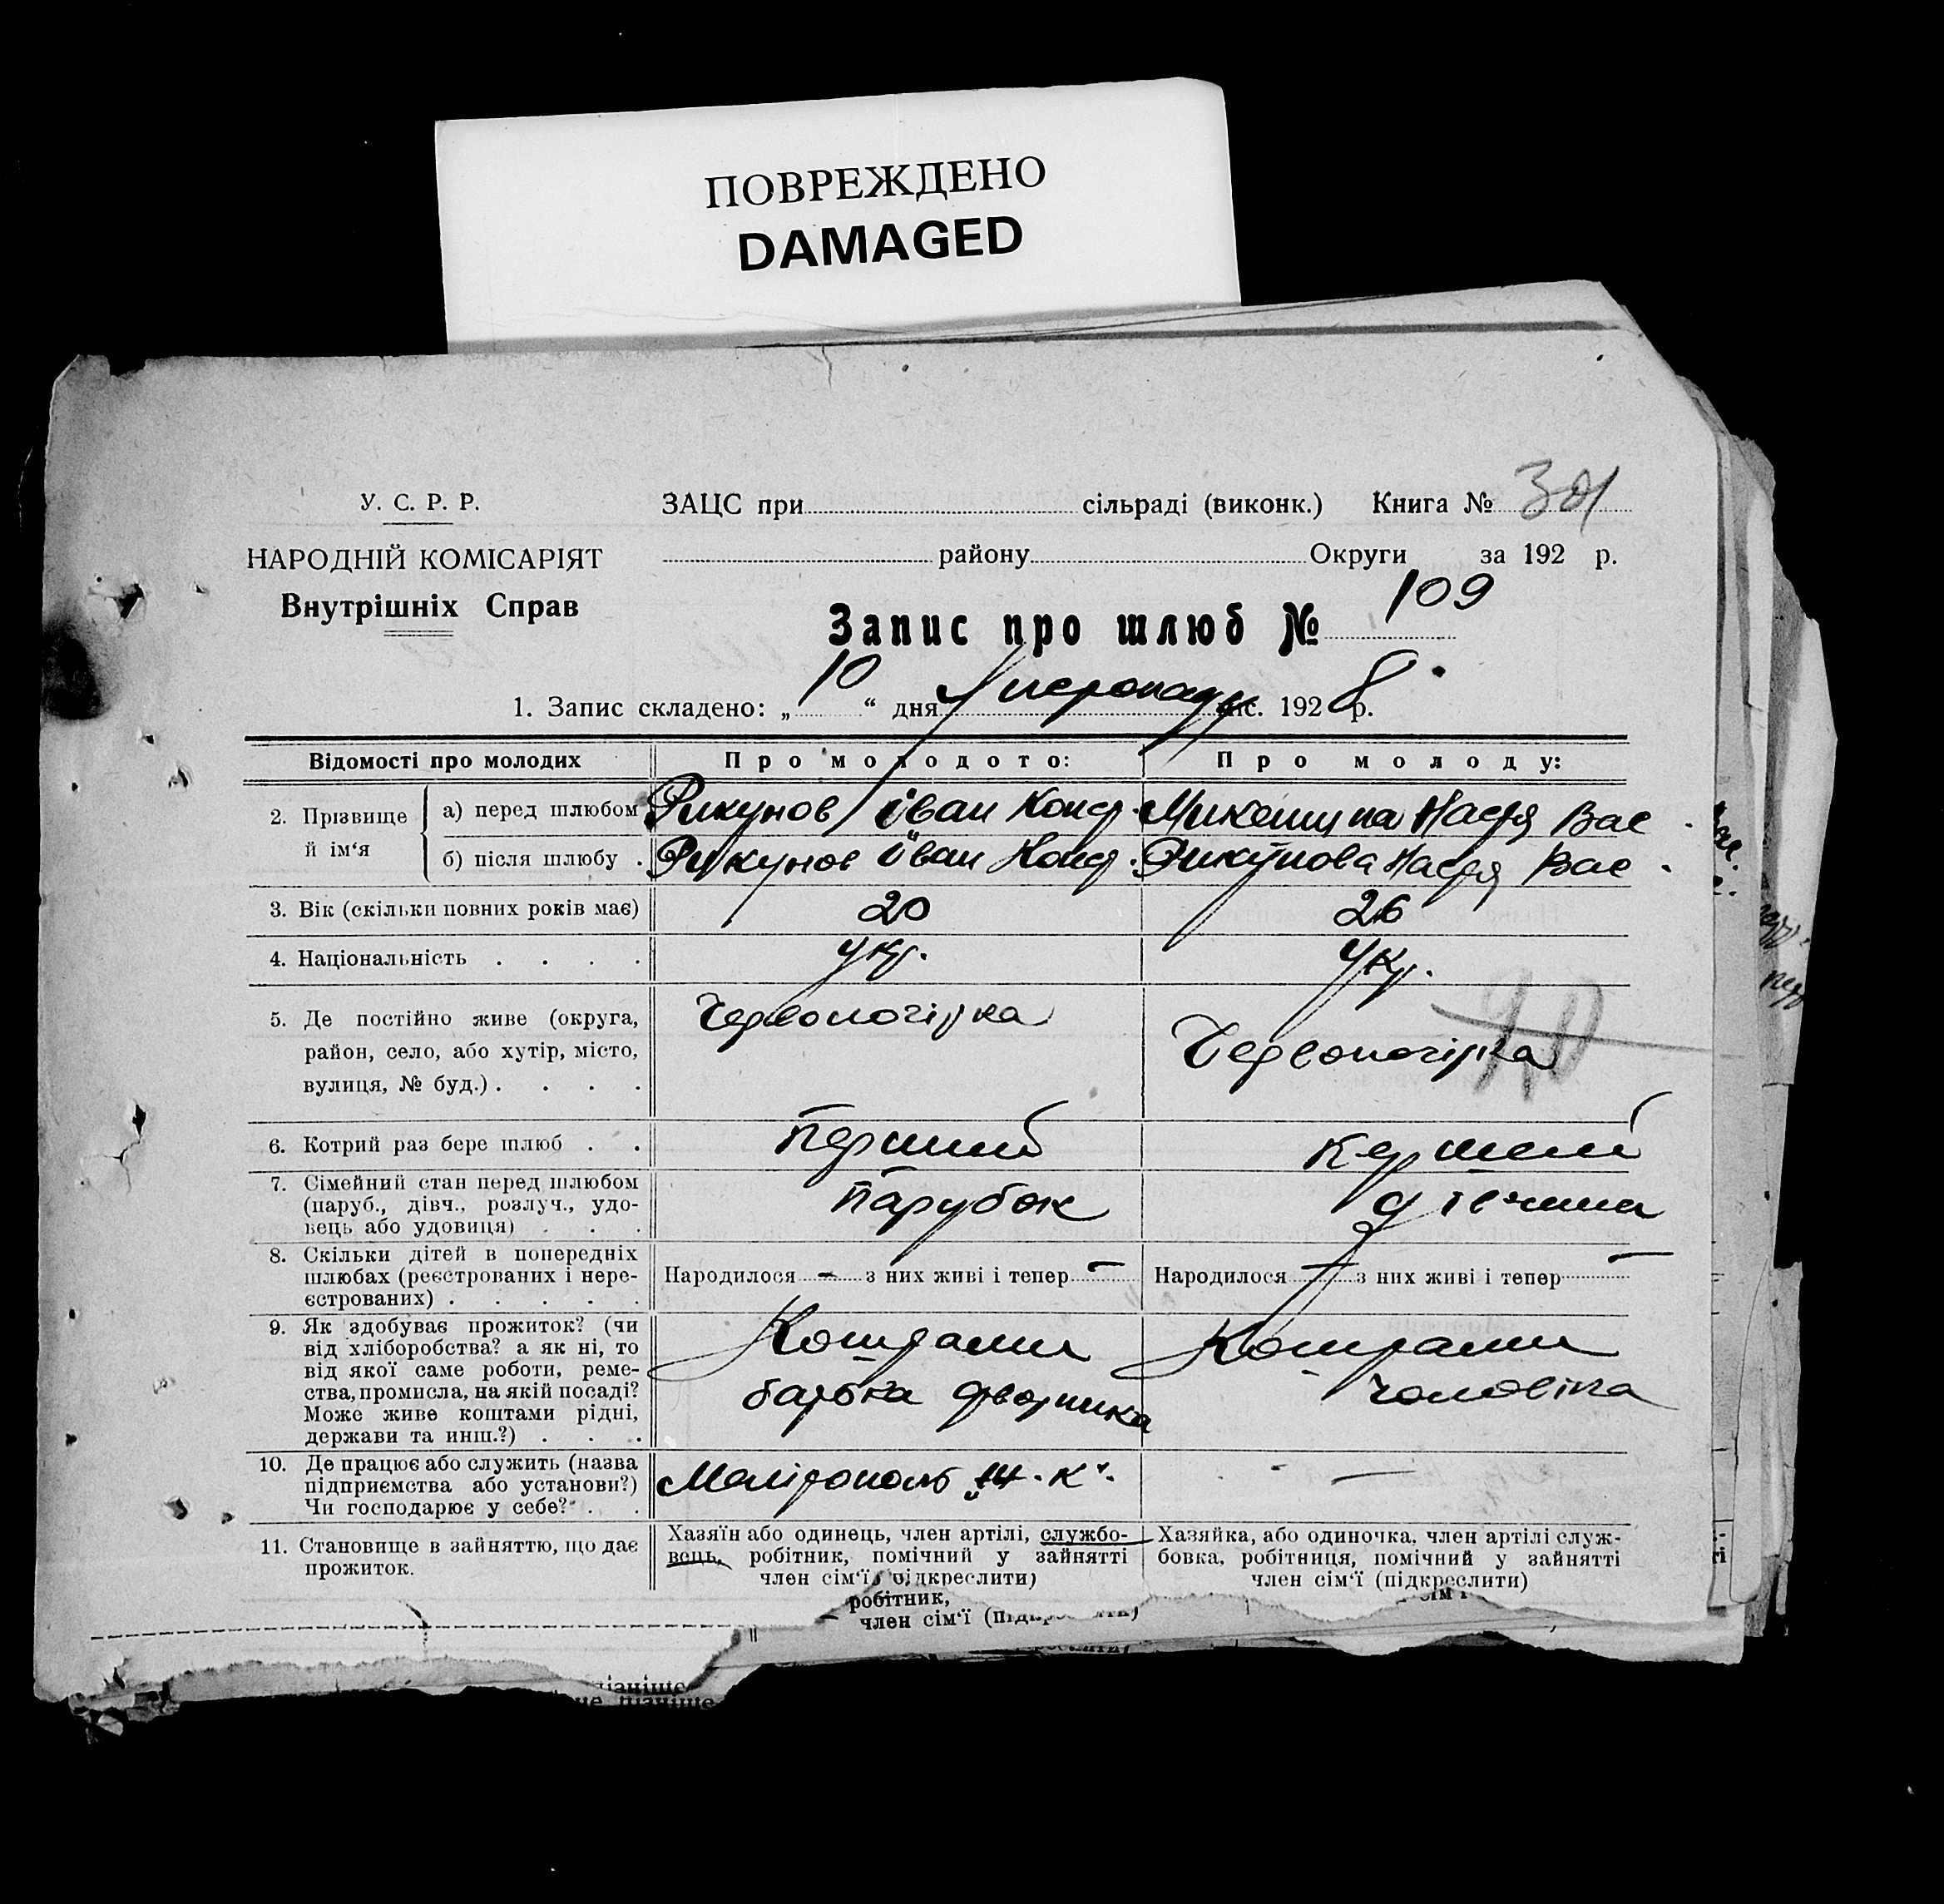 ПОВРЕЖДЕНО
DAMAGED
У. С. Р. Р.
НАРОДНІЙ КОМІСАРІЯТ
Внутрішніх Справ
ЗАЦС при сільраді (виконк.) Книга № 301
району Округи за 192 р.
Запис про шлюб № 109
1. Запис складено: „10“ дня Листопаду міс. 1928 р.
Відомості про молодих Про молодого: Про молоду:
2. Прізвище й ім‘я
а) перед шлюбом Рикунов Іван Конд. Настя Вас.
б) після шлюбу . Рикунов Іван Конд. Рикунова Настя Вас.
3. Вік (скільки повних років має) 20 26
4. Національність . . . . укр. укр.
5. Де постійно живе (округа,
район, село, або хутір, місто,
вулиця, № буд.) . . . .
Червоногірка Червоногірка
6. Котрий раз бере шлюб . . Перший Перший
7. Сімейний стан перед шлюбом
(паруб., дівч., розлуч., удо-
вець або удовиця) . . .
Парубок дівчина
8. Скільки дітей в попередніх
шлюбах (реєстрованих і нере-
єстрованих) . . . . .
Народилося — з них живі і тепер — Народилося — з них живі і тепер —
9. Як здобуває прожиток? (чи
від хліборобства? а як ні, то
від якої саме роботи, реме-
ства, промисла, на якій посаді?
Може живе коштами рідні,
держави та инш.?) . . .
Коштами
батька двірника
Коштами
чоловіка
10. Де працює або служить (назва
підприємства або установи?)
Чи господарює у себе? . .
—
11. Становище в зайняттю, що дає
прожиток.
Хазяїн або одинець, член артілі, службо-
вець, робітник, помічний у зайнятті
член сім‘ї (підкреслити)
Хазяйка, або одиночка, член артілі служ-
бовка, робітниця, помічний у зайнятті
член сім‘ї (підкреслити)
робітник,
член сім‘ї
пізніше